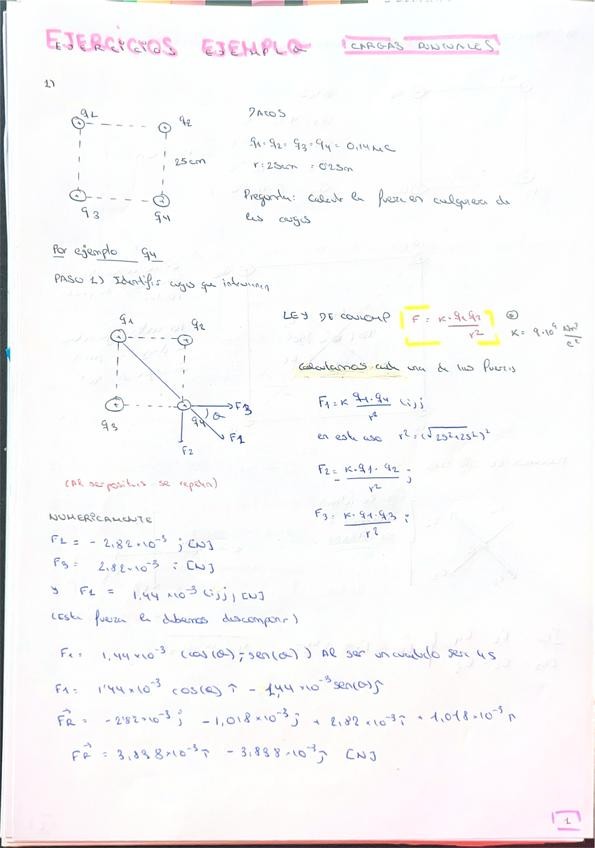 EJERCICIOS EJEMPLO CARGAS PUNTUALES
1)
q1 q2
25cm
q3 q4
DATOS
q1 = q2 = q3 = q4 = 0,14 MC
r = 25cm = 0'25m
Pregunta: calcula la fuerza en cualquiera de
las cargas
Por ejemplo q4
PASO 1) Identifis cargas que intervienen
q1 q2
q3 q4
F3
α
F1
F2
LEY DE COULOMB F = K · q1 q2 / r²
K = 9·10⁹ Nm² / C²
calculamos cada una de las fuerzas
F1 = K q1·q4 / r² (i,j
en este caso r² = (√25²+25²)²
F2 = K·q1·q2 / r² j
F3 = K·q1·q3 / r² i
(Al ser positivas se repelen)
NUMERICAMENTE
F2 = - 2,82·10⁻³ j [N]
F3 = 2,82·10⁻³ i [N]
y F1 = 1,44·10⁻³ (i,j) [N]
(Esta fuerza la debemos descomponer)
F1 = 1,44×10⁻³ (cos(α), -sen(α)) Al ser un cuadrado será 45
F1 = 1'44×10⁻³ cos(α) i - 1,44×10⁻³ sen(α) j
FR = -2'82×10⁻³ j - 1,018×10⁻³ j + 2,82×10⁻³ i + 1,018×10⁻³ i
FR = 3,838×10⁻³ i - 3,838×10⁻³ j [N]
1